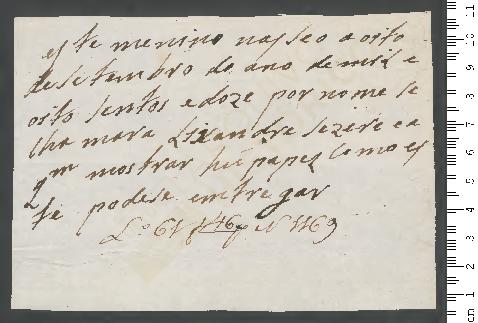 este menino nasseo a oito
de setembro do ano de mil e
oito sentos e doze por nome se
chamara Lixandre sezere ea
q.m mostrar hũ papeL Como es
te podese emtregar
L.o 61 f 46 N 1169